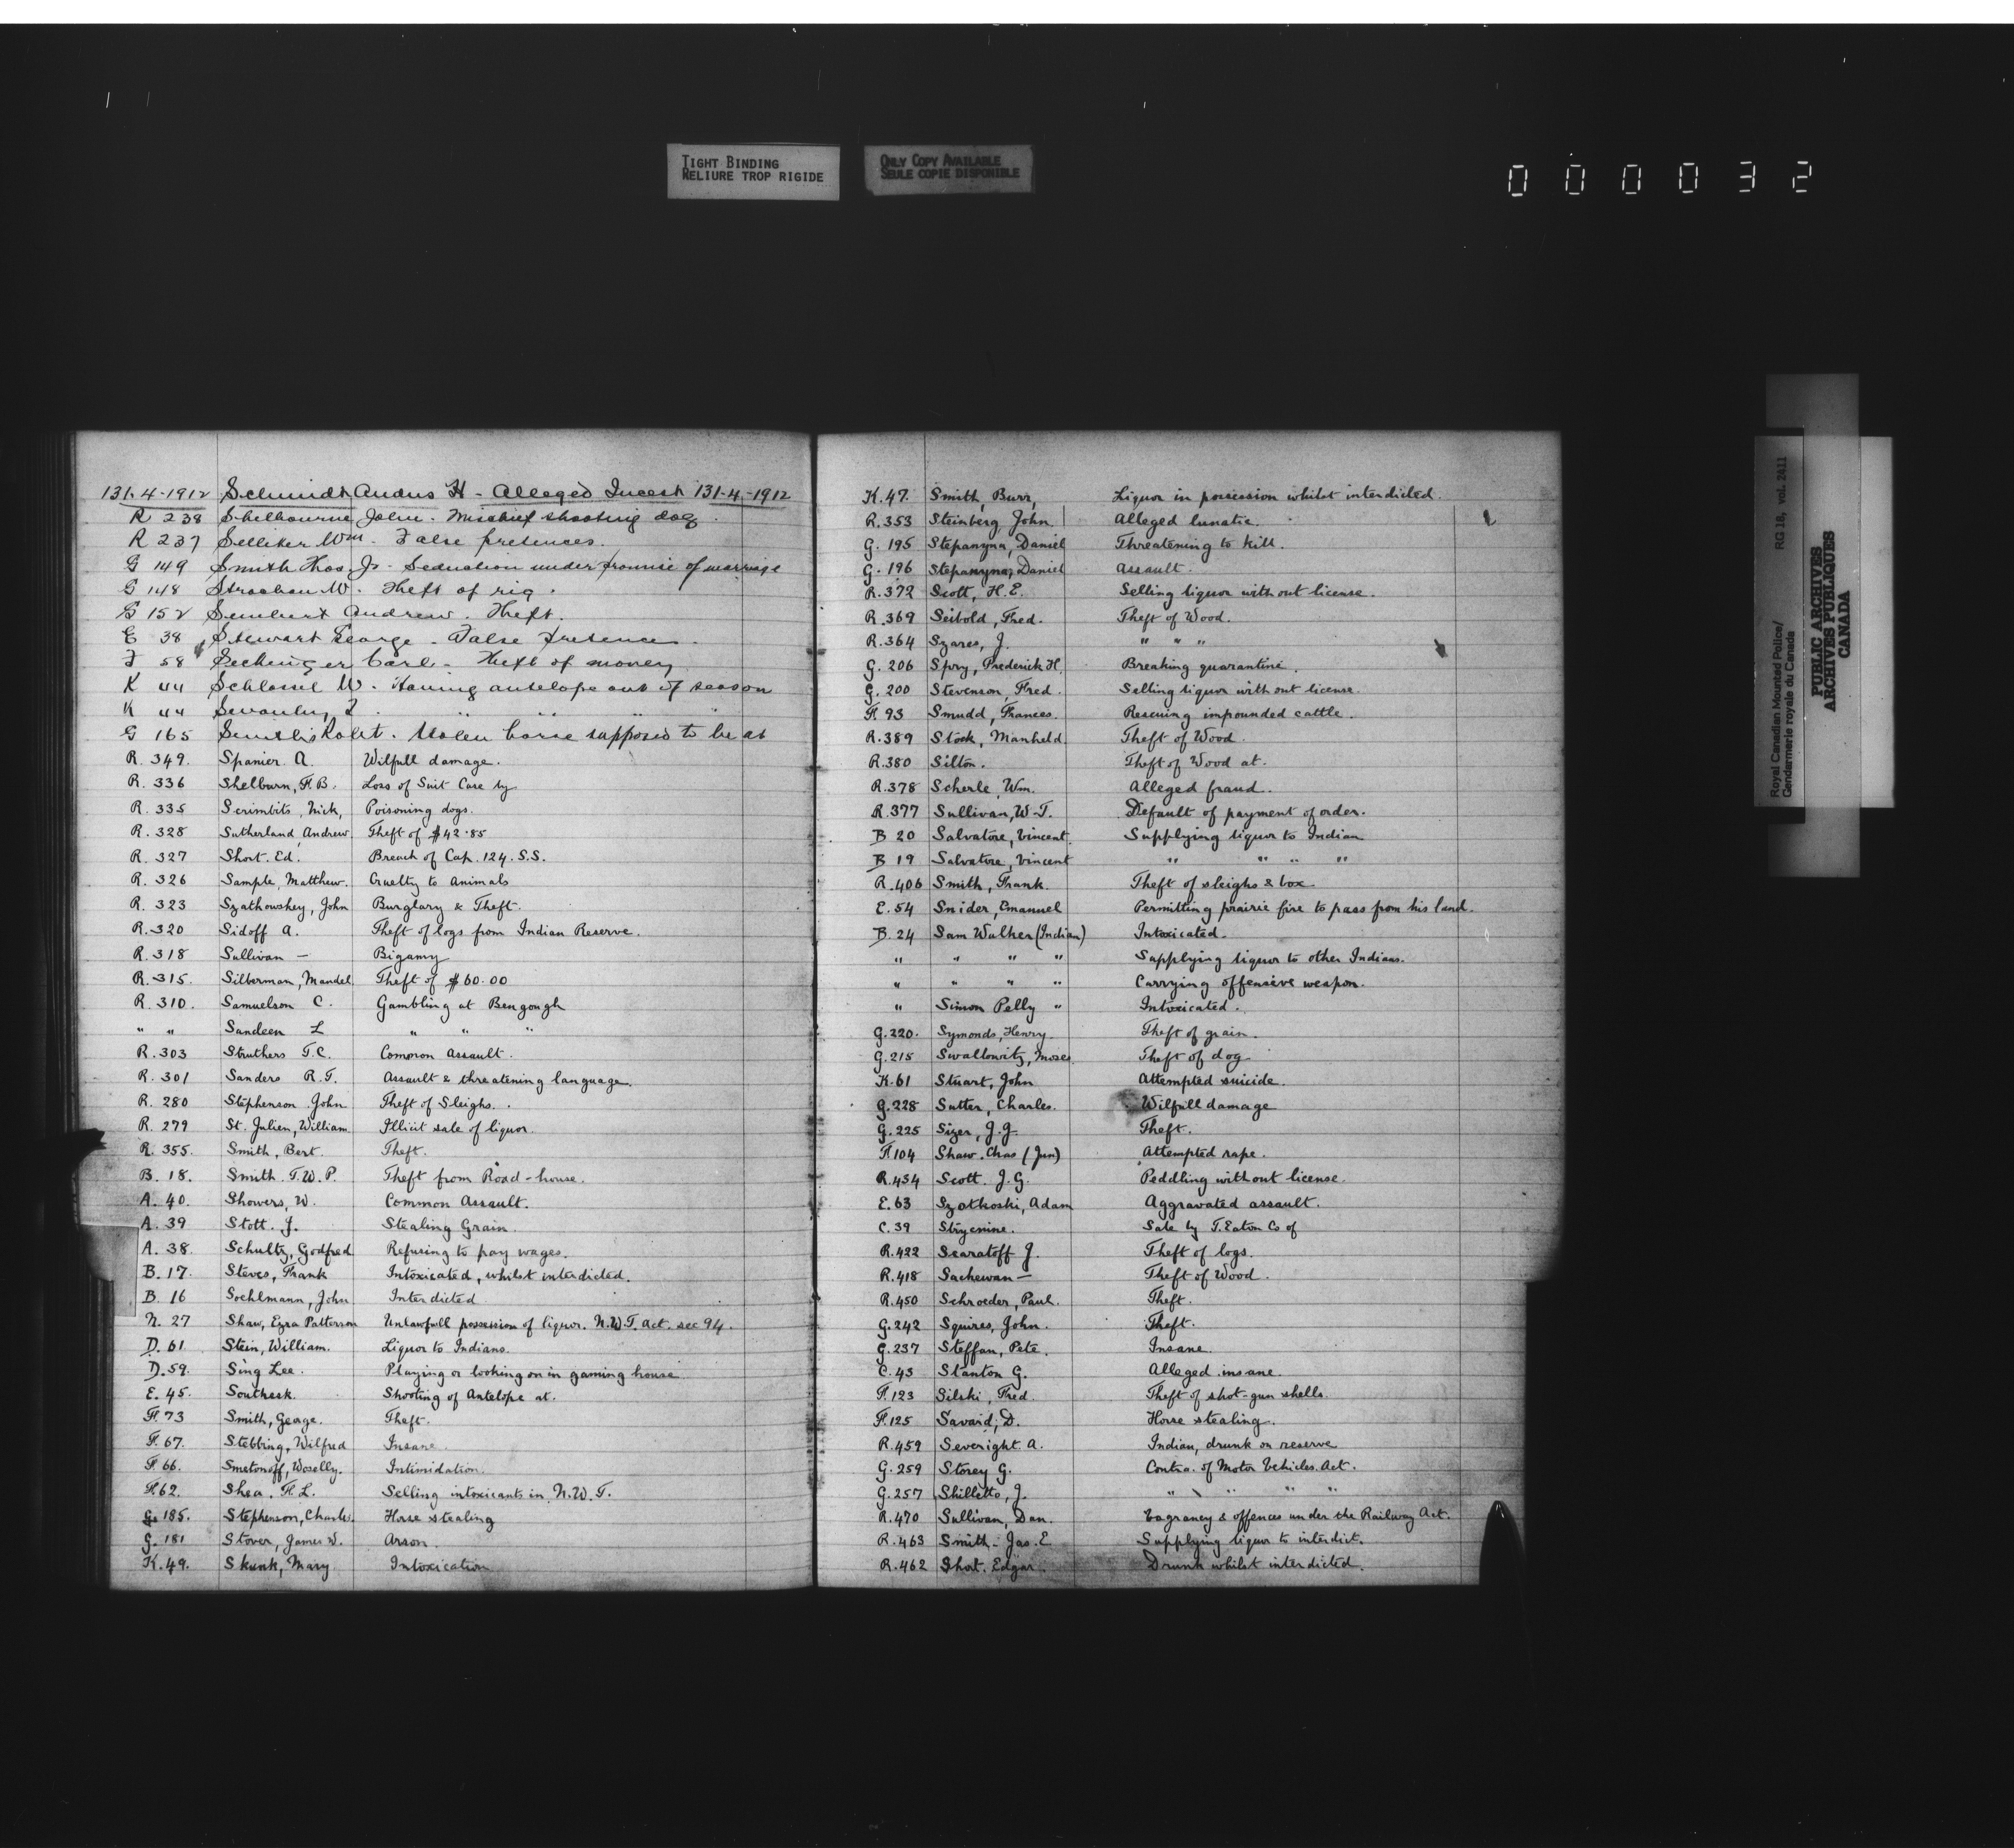 TIGHT BINDING
RELIURE TROP RIGIDE
ONLY COPY AVAILABLE
SEULE COPIE DISPONIBLE
000032
131-4-1912 Schmidt Andus H - Alleged Incest 131-4-1912
R 238 Shelbourne John - Mischief shooting dog.
R 237 Selliker Wm - False pretences.
G 149 Smith Thos. Jr - Seduction under promise of marriage
G 148 Strachan W. Theft of rig.
G 152 Andrew. Theft.
E 38 Stewart George - False pretences.
F 58 Sechinger Carl - Theft of money
K 44 Schlossil W. Having antelope out of season
K 44 " " " "
G 165 Robt. Stolen horse supposed to be at
R. 349. Spanier A. Wilfull damage.
R. 336 Shelburn, F.B. Loss of Suit Case by
R. 335 Scrimbits, Nick, Poisoning dogs.
R. 328 Sutherland, Andrew Theft of $42.85
R. 327 Short. Ed. Breach of Cap. 124. S.S.
R. 326 Sample, Matthew. Cruelty to Animals
R. 323 Szathowskey, John Burglary & Theft.
R. 320 Sidoff A. Theft of logs from Indian Reserve.
R. 318 Sullivan — Bigamy
R. 315. Silberman, Mandel Theft of $60.00
R. 310. Samuelson C. Gambling at Bengough
" " Sandeen L " " "
R. 303 Struthers T.C. Common Assault.
R. 301 Sanders R.T. Assault & threatening language.
R. 280 Stephenson John Theft of Sleighs.
R. 279 St. Julien, William Illicit sale of liquor.
R. 355. Smith, Bert. Theft.
B. 18. Smith. T.W.P. Theft from Road-house.
A. 40. Showers, W. Common Assault.
A. 39 Stott. J. Stealing Grain.
A. 38. Schultz, Godfred Refusing to pay wages.
B. 17. Steves, Frank Intoxicated, whilst interdicted.
B. 16 Soehlmann, John Interdicted
N. 27 Shaw, Ezra Patterson Unlawfull possession of liquor. N.W.T. Act. sec 94.
D. 61 Stein, William. Liquor to Indians.
D. 59. Sing Lee. Playing or looking on in gaming house
E. 45. Southesk. Shooting of Antelope at.
F. 73 Smith, George. Theft.
F. 67. Stebbing, Wilfred Insane.
F. 66. Smetonoff, Woselly. Intimidation.
F. 62. Shea. F.L. Selling intoxicants in N.W.T.
G. 185. Stephenson, Charles. Horse stealing
G. 181 Stover, James W. Arson.
K. 49. Skunk, Mary Intoxication
K. 47. Smith, Burr, Liquor in possession whilst interdicted.
R. 353 Steinberg, John Alleged lunatic.
G. 195 Stepanyna, Daniel Threatening to kill.
G. 196 Stepanyna, Daniel Assault.
R. 372 Scott, H.E. Selling liquor without license.
R. 369 Seibold, Fred. Theft of Wood.
R. 364 Szares, J. " " "
G. 206 Spry, Frederick H. Breaking quarantine.
G. 200 Stevenson, Fred. Selling liquor without license.
F. 93 Smudd, Frances. Rescuing impounded cattle.
R. 389 Stock, Manheld Theft of Wood.
R. 380 Silton. Theft of Wood at.
R. 378 Scherle, Wm. Alleged fraud.
R. 377 Sullivan, W-T. Default of payment of order.
B 20 Salvatore, Vincent. Supplying liquor to Indian
B 19 Salvatore, Vincent " " " "
R. 406 Smith, Frank. Theft of sleighs & box
E. 54 Snider, Emanuel Permitting prairie fire to pass from his land.
B. 24 Sam Walker (Indian) Intoxicated.
" " " " Supplying liquor to other Indians.
" " " " Carrying offensive weapon.
" Simon Pelly " Intoxicated.
G. 220. Symonds, Henry Theft of grain.
G. 215 Swallowitz, Moses. Theft of dog
K. 61 Stuart, John Attempted suicide.
G. 228 Sutter, Charles. Wilfull damage
G. 225 Sizer, J.J. Theft.
F. 104 Shaw. Chas (Jun) Attempted rape.
R. 434 Scott. J.G. Peddling without license.
E. 63 Szatkoski, Adam Aggravated assault.
C. 39 Strycnine. Sale by T. Eaton Co of
R. 422 Scaratoff J. Theft of logs.
R. 418 Sachewan — Theft of Wood.
R. 450 Schroeder, Paul. Theft.
G. 242 Squires, John. Theft.
G. 237 Steffan, Pete. Insane.
C. 43 Stanton G. Alleged insane.
F. 123 Silski, Fred. Theft of shot-gun shells.
F. 125 Savard, D. Horse stealing.
R. 459 Severight A. Indian, drunk on reserve
G. 259 Storey G. Contra. of Motor Vehicles Act.
G. 257 Shilletto, J. " " " "
R. 470 Sullivan, Dan. Vagrancy & offences under the Railway Act.
R. 463 Smith - Jas. E. Supplying liquor to interdict.
R. 462 Short. Edgar. Drunk whilst interdicted.
Royal Canadian Mounted Police/ RG 18, vol. 2411
Gendarmerie royale du Canada
PUBLIC ARCHIVES
ARCHIVES PUBLIQUES
CANADA